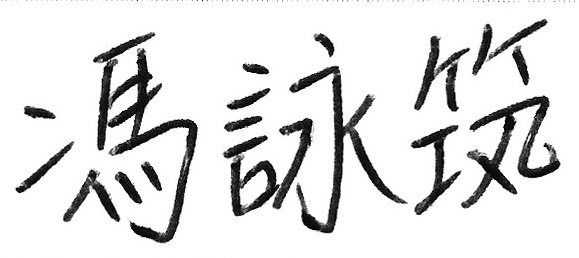 馮詠筑